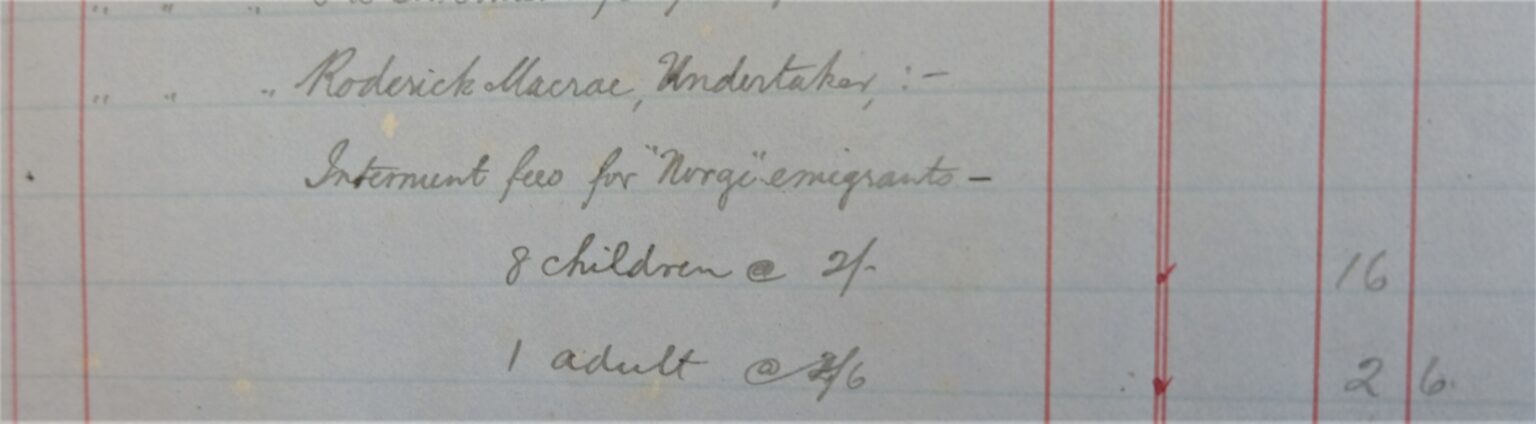 " " " Roderick Macrae, Undertaker, :-
Interment fees for "Norge" emigrants -
8 children @ 2/- 16
1 adult @ 2/6 2 6.